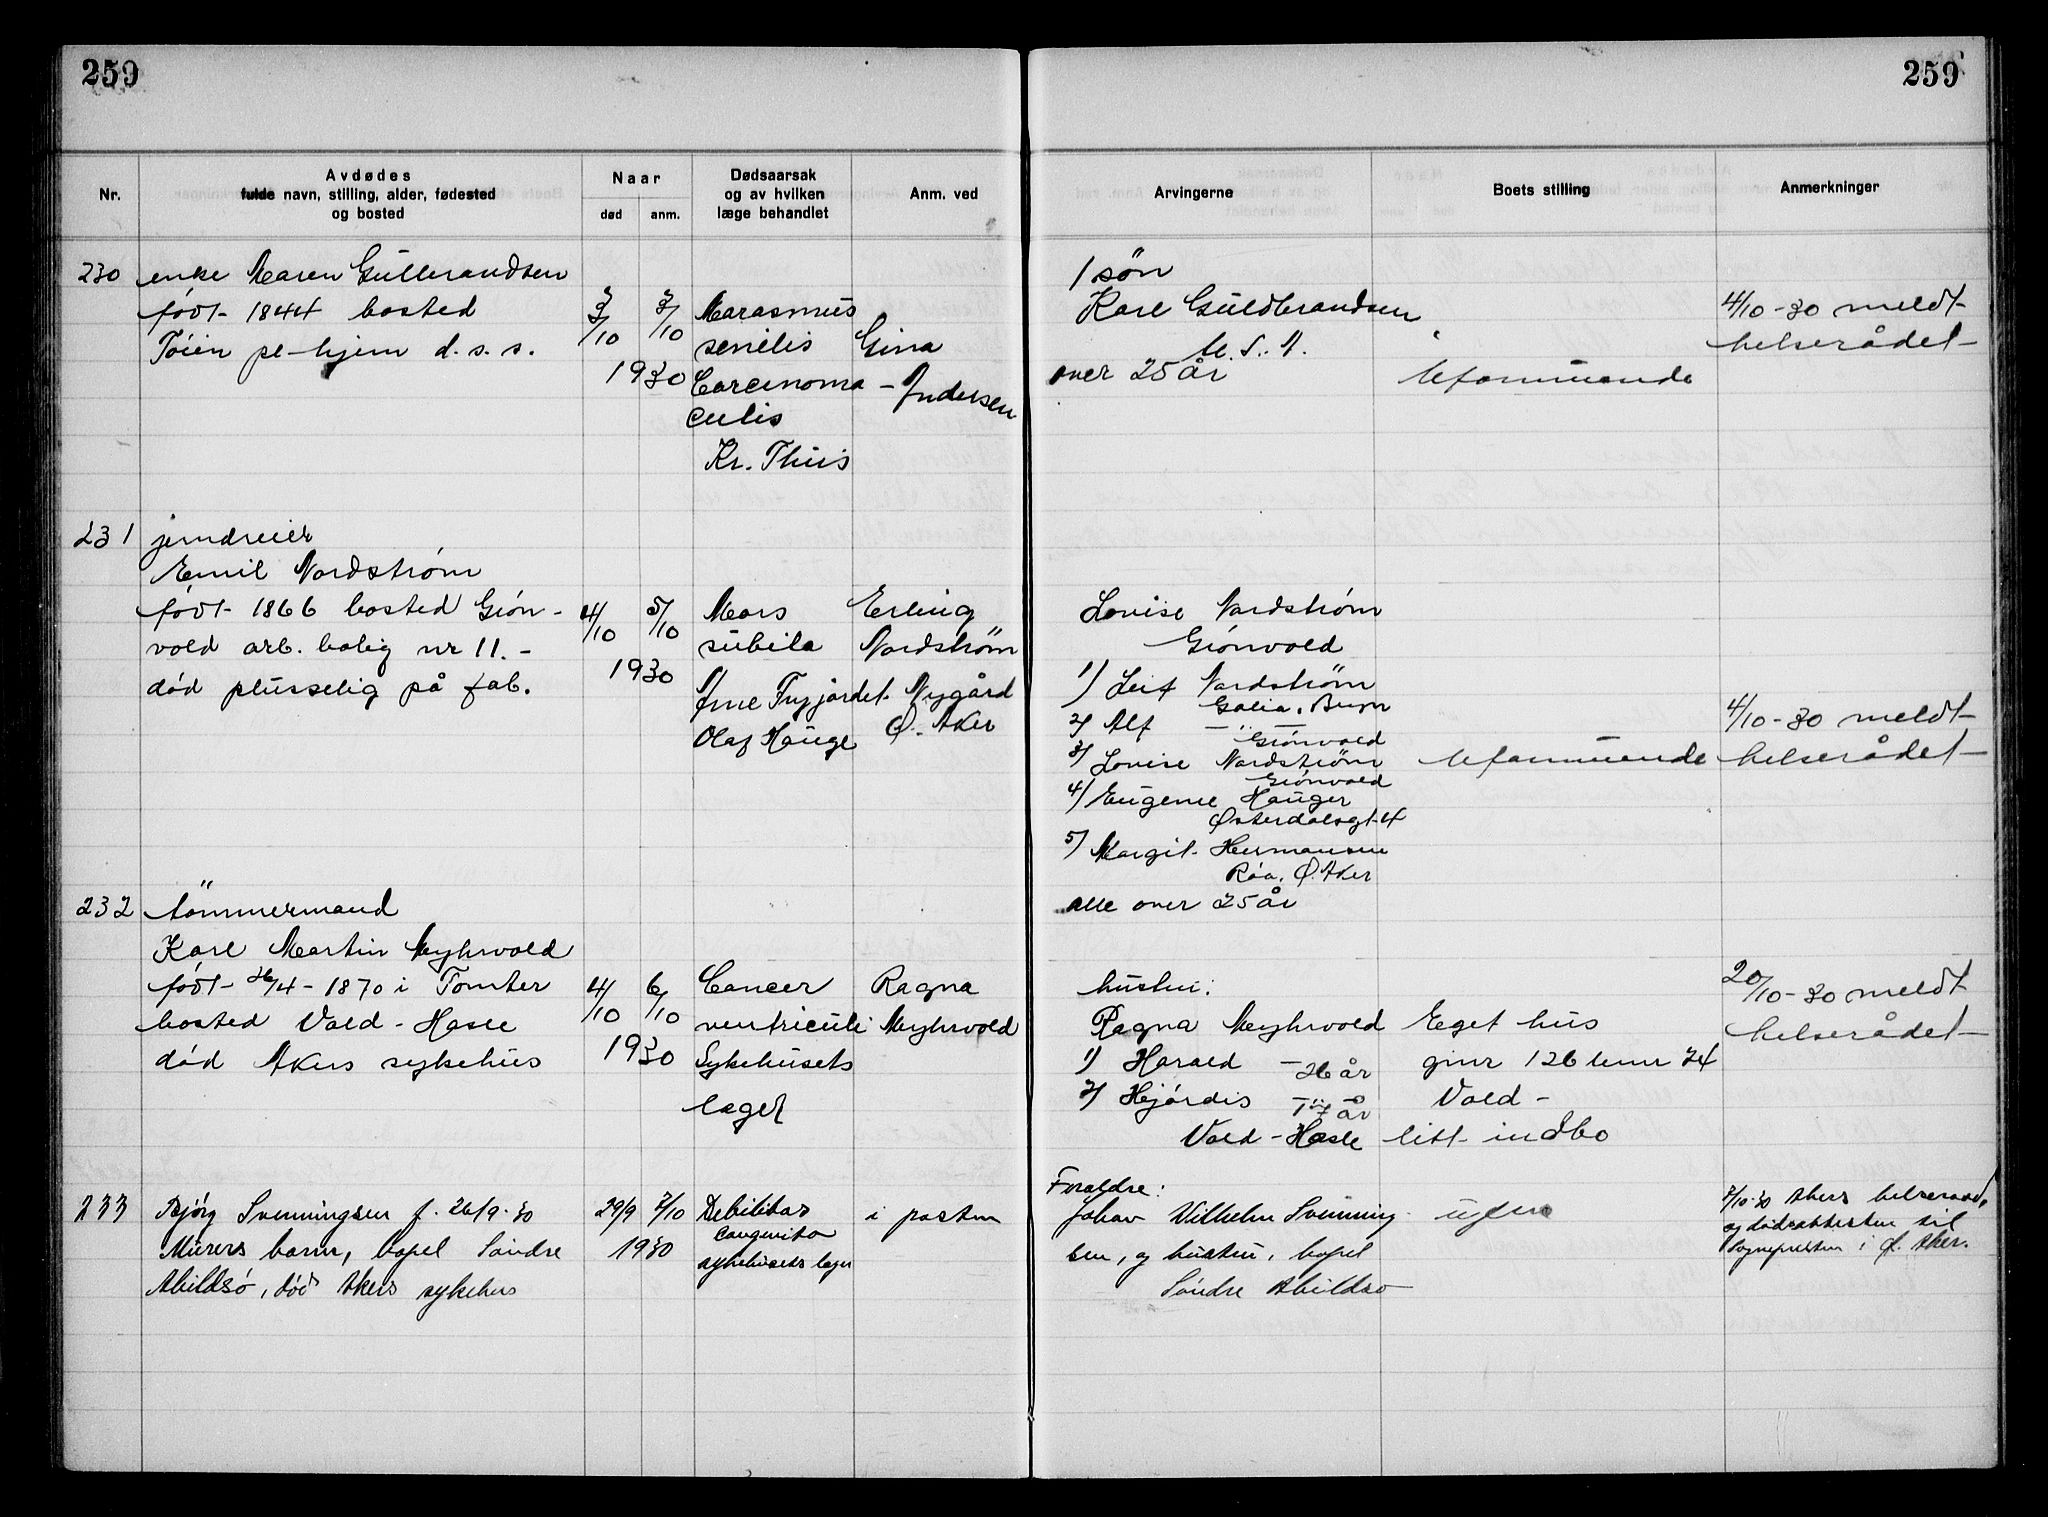 259
259
Nr.
Avdødes
fulde navn, stilling, alder, fødested
og bosted
Naar
død
anm.
Dødsaarsak
og av hvilken
læge behandlet
Anm. ved
Arvingerne
Boets stilling
Anmerkninger
230 enke Maren Gulbrandsen
født 1844 bosted
Töien pl-hjem d. s. s.
3/10 3/10
1930
Marasmus
senilis
Carcinoma
cutis
Kr. Thuis
Gina
Andersen
1 sön
Karl Guldbrandsen
U. S. A.
over 25 år
Uformuende
4/10-30 meldt
helserådet
231 jerndreier
Emil Nordstrøm
født 1866 bosted Grøn-
vold arb. bolig nr 11. -
død plusselig på fab.
4/10 5/10
1930
Mors
subita
Arne Fryjordet
Olaf Hauge
Erling
Nordstrøm
Nygård
Ø. Aker
Lovise Nordstrøm
Grönvold
1) Leif Nordström
2) Alf — " —
Grönvold
3) Lovise Nordström
Grönvold
4) Eugenie Hauger
Østerdalsgt 4
5) Margit Hermansen
Röa. Ø. Aker
alle over 25 år
Uformuende
4/10-30 meldt
helserådet
232 tömmermand
Karl Martin Myhrvold
født 26/4-1870 i Tomter
bosted Vold-Hasle
död Akers sykehus
4/10 6/10
1930
Cancer
ventriculi
Sykehusets
læger
Ragna
Myhrvold
hustru:
Ragna Myhrvold
1) Harald — 26 år
2) Hjördis — " — år
Vold-Hasle
Eget hus
gnr 126 bnr 74
Vold -
litt indbo
20/10-30 meldt
helserådet
233 Bjørg Svenningsen f. 26/9-30
Murers barn, bopel Söndre
Abildsö, död Akers sykehus
29/9 7/10
1930
Debilitas
congenita
sykehusets læger
i posten
Foreldre:
Johan Wilhelm Svenning-
sen, og hustru, bopel
Söndre Abildsö
ufm
7/10-30 Akers helseraad,
og dødsattesten til
Sognepresten i Ø. Aker.